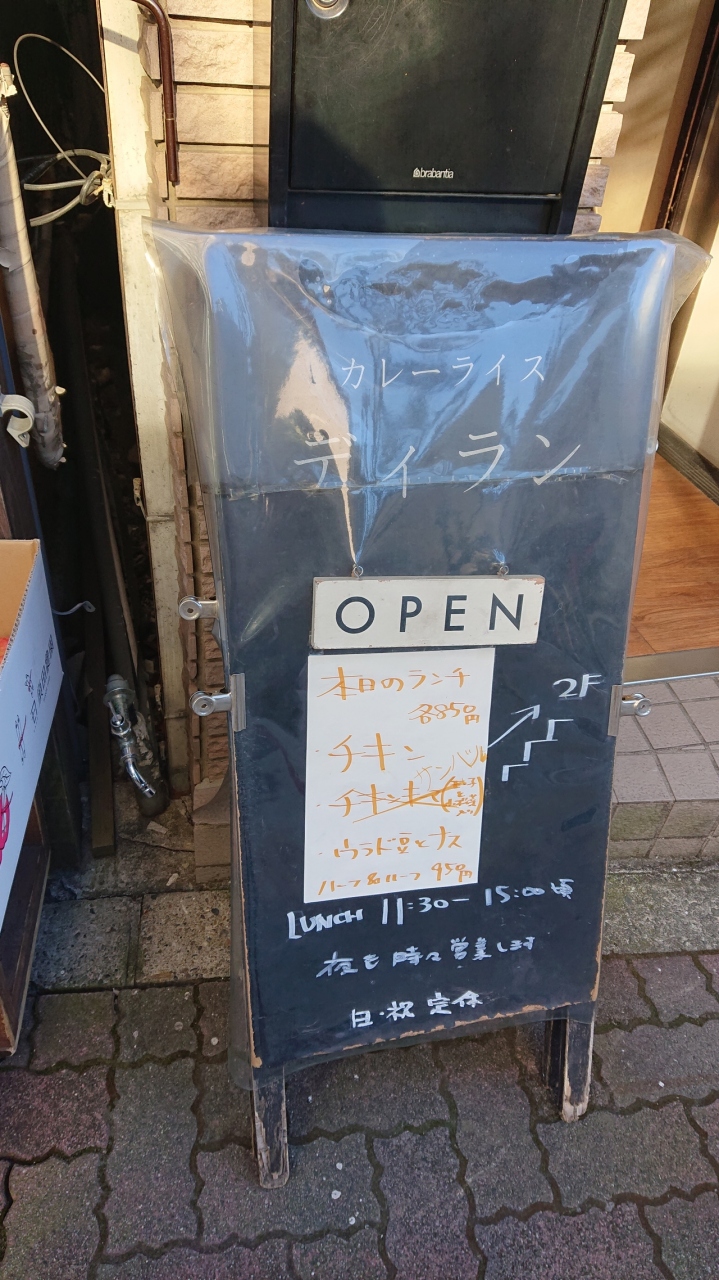 brabantia
カレーライス
ディラン
OPEN
本日のランチ
各850円
2F
・チキン
サンバル
・ウラド豆とナス
ハーフ&ハーフ 950円
LUNCH 11:30-15:00頃
夜も時々営業します
日・祝 定休